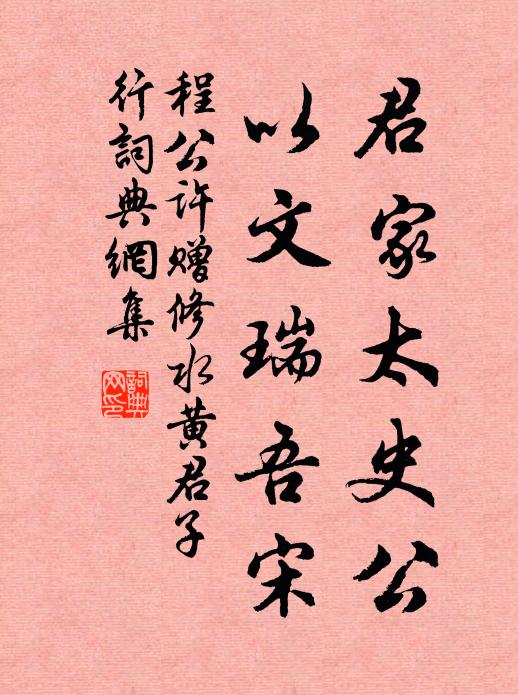 君家太史公
以文瑞吾宋
程公许赠修水黄君子
行詞典網集
詞典网印